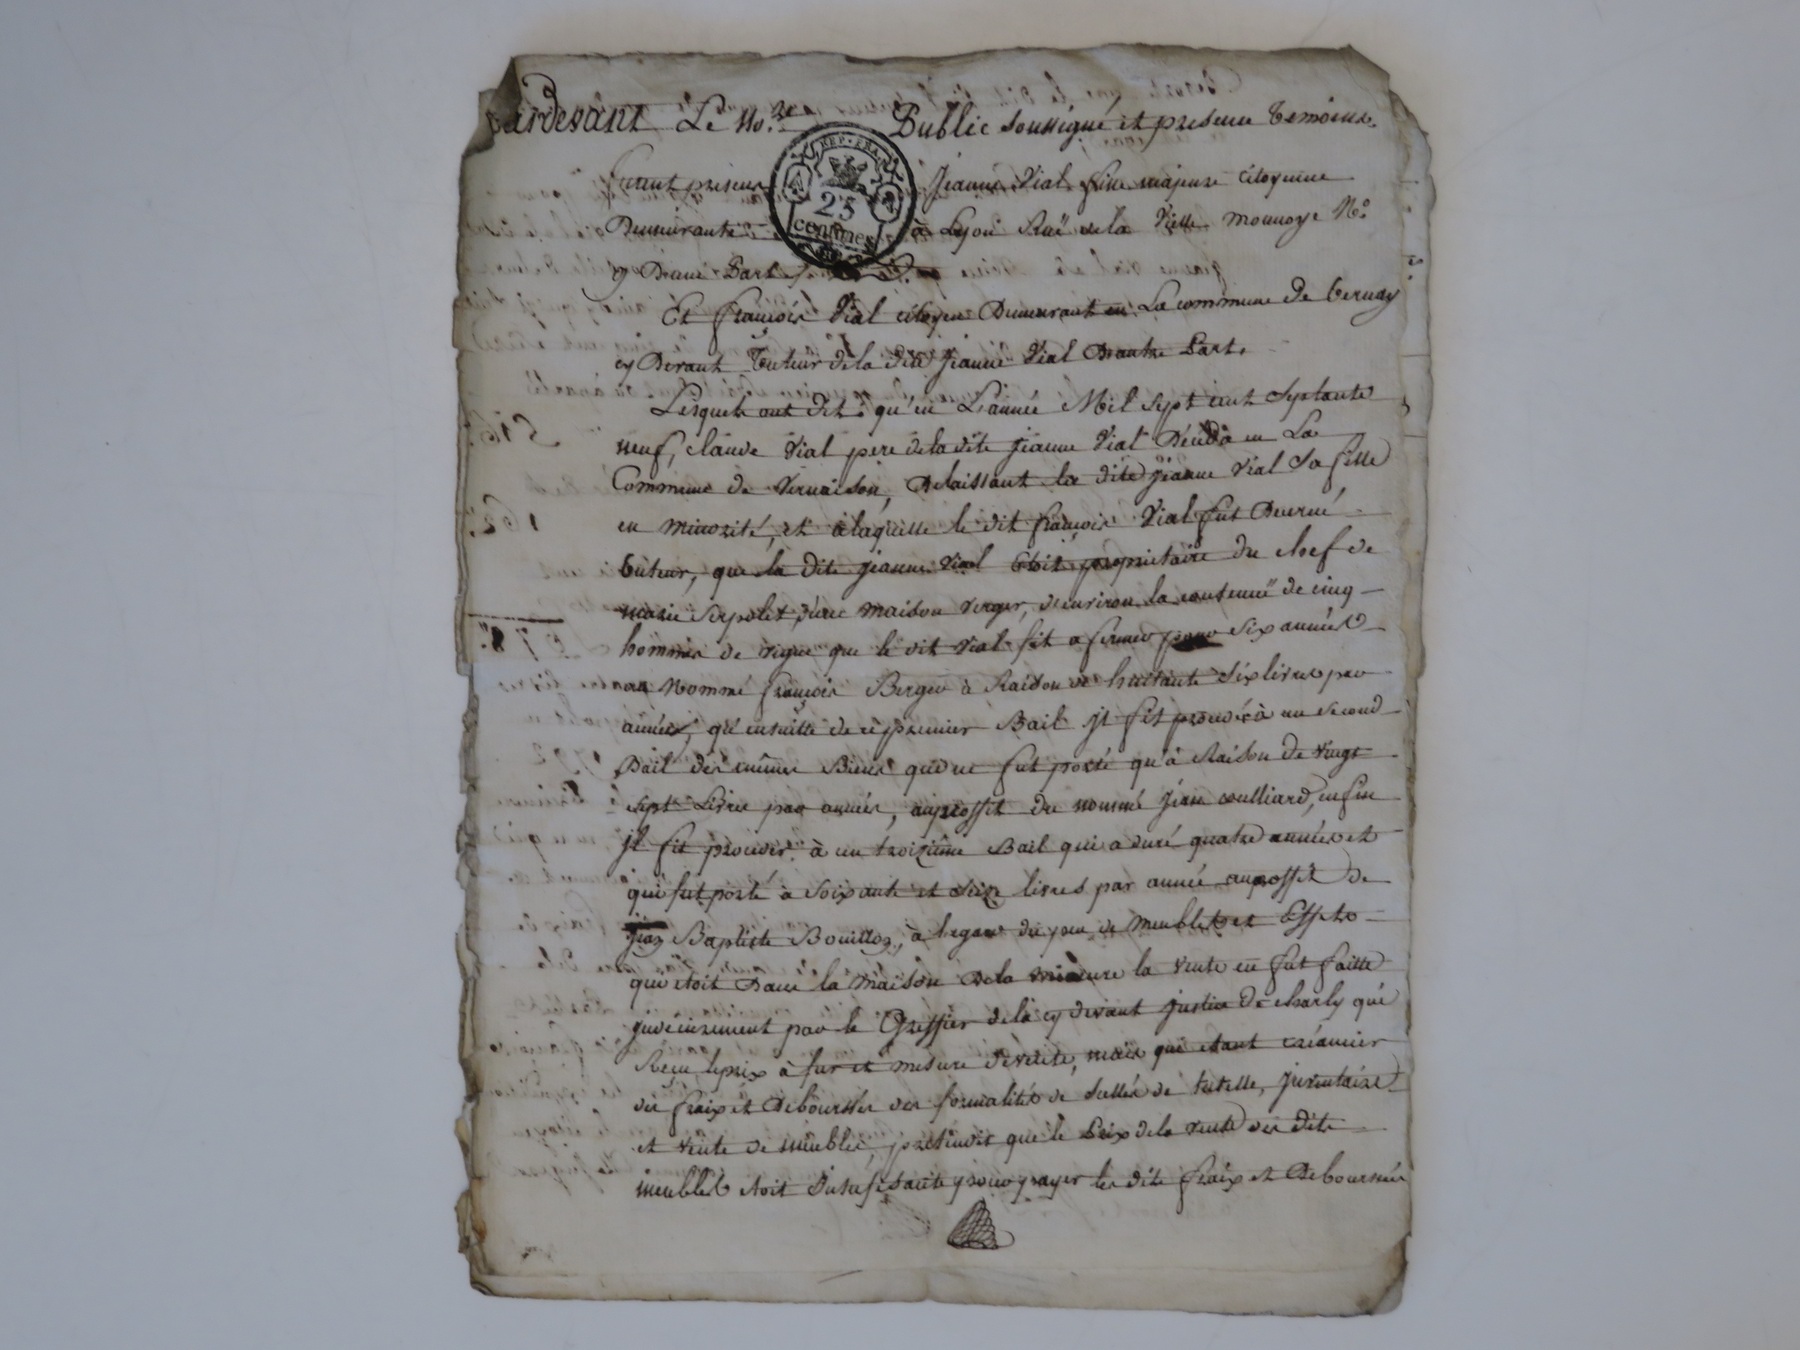 Pardevant Le No.re Public soussigné et presence temoins.
furent presens Jeanne Vial fille majeure citoyenne
REP. FRA
25
centimes
Demeurante à Lyon Ruë de la Vielle monnoye N.o
y D'une Part
Et françois Vial citoyen Demeurant en La commune de Vernay
cy Devant Tuteur de la dite Jeanne Vial D'autre Part.
Lesquels ont dit. qu'en L'année Mil sept cent septante
neuf, claude Vial pere de la dite Jeanne Vial Déceda en La
Commune de Vernaison, Delaissant la dite Jeanne Vial Sa fille
en minorité, et à laquelle le dit françois Vial fut Decerné
tuteur, que la dite jeanne Vial Etoit proprietaire du chef de
marie Serpolet, d'une maison verger, d'environ la contenuë de cinq
hommées de vigne que le dit Vial fit afermer pour Six années
au Nommé françois Berger à Raison de huitante Six livres par
années, qu'ensuitte de ce premier Bail jl fit proceder à un second
Bail des mêmes Biens qui ne fut porté qu'à Raison de vingt
sept Livres par année, auproffit du nommé Jean coulliard, enfin
jl fit proceder à un troizième Bail qui a duré quatre années et
qui fut porté à soixante et seize livres par année auproffit de
Jean Baptiste Bouillon, à legard du peu de meubles et Effets
que étoit Dans la maison de la mineure la vente en fut faitte
judiciairement par le Greffier de la cy devant justice de charly qui
Reçu le prix à fur et mesure d'icelle, mais qui etant créancier
des fraix et Deboursés des formalités de scellés de tutelle, jnventaire
et vente de meubles, prétendit que le Prix de la vente des dits
meubles étoit Insufisante pour payer les dits fraix et Deboursés